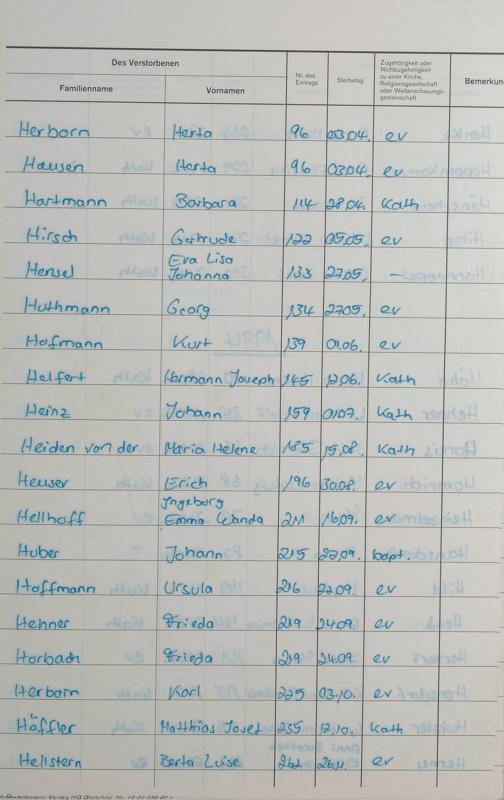 Des Verstorbenen
Familienname Vornamen Nr. des Eintrags Sterbetag Zugehörigkeit oder Nichtzugehörigkeit zu einer Kirche, Religionsgesellschaft oder Weltanschauungsgemeinschaft Bemerkun
Herborn Herta 96 03.04. ev
Hausen Herta 96 03.04. ev
Hartmann Barbara 114 28.04. Kath
Hirsch Gertrude 122 05.05. ev
Eva Lisa
Hensel Johanna 133 27.05. –
Huthmann Georg 134 27.05. ev
Hofmann Kurt 139 01.06. ev
Helfert Hermann Joseph 145 12.06. Kath
Heinz Johann 159 01.07. Kath
Heiden von der Maria Helene 185 15.08. Kath
Heuser Erich 196 30.08. ev
Ingeborg
Hellhoff Emma Wanda 211 16.09. ev
Huber Johann 215 22.09. bapt.
Hoffmann Ursula 216 22.09. ev
Hehner Frieda 219 24.09. ev
Horbach Frieda 219 24.09. ev
Herborn Karl 225 03.10. ev
Höffler Matthias Josef 235 12.10. Kath
Hellstern Berta Luise 262 26.11. ev